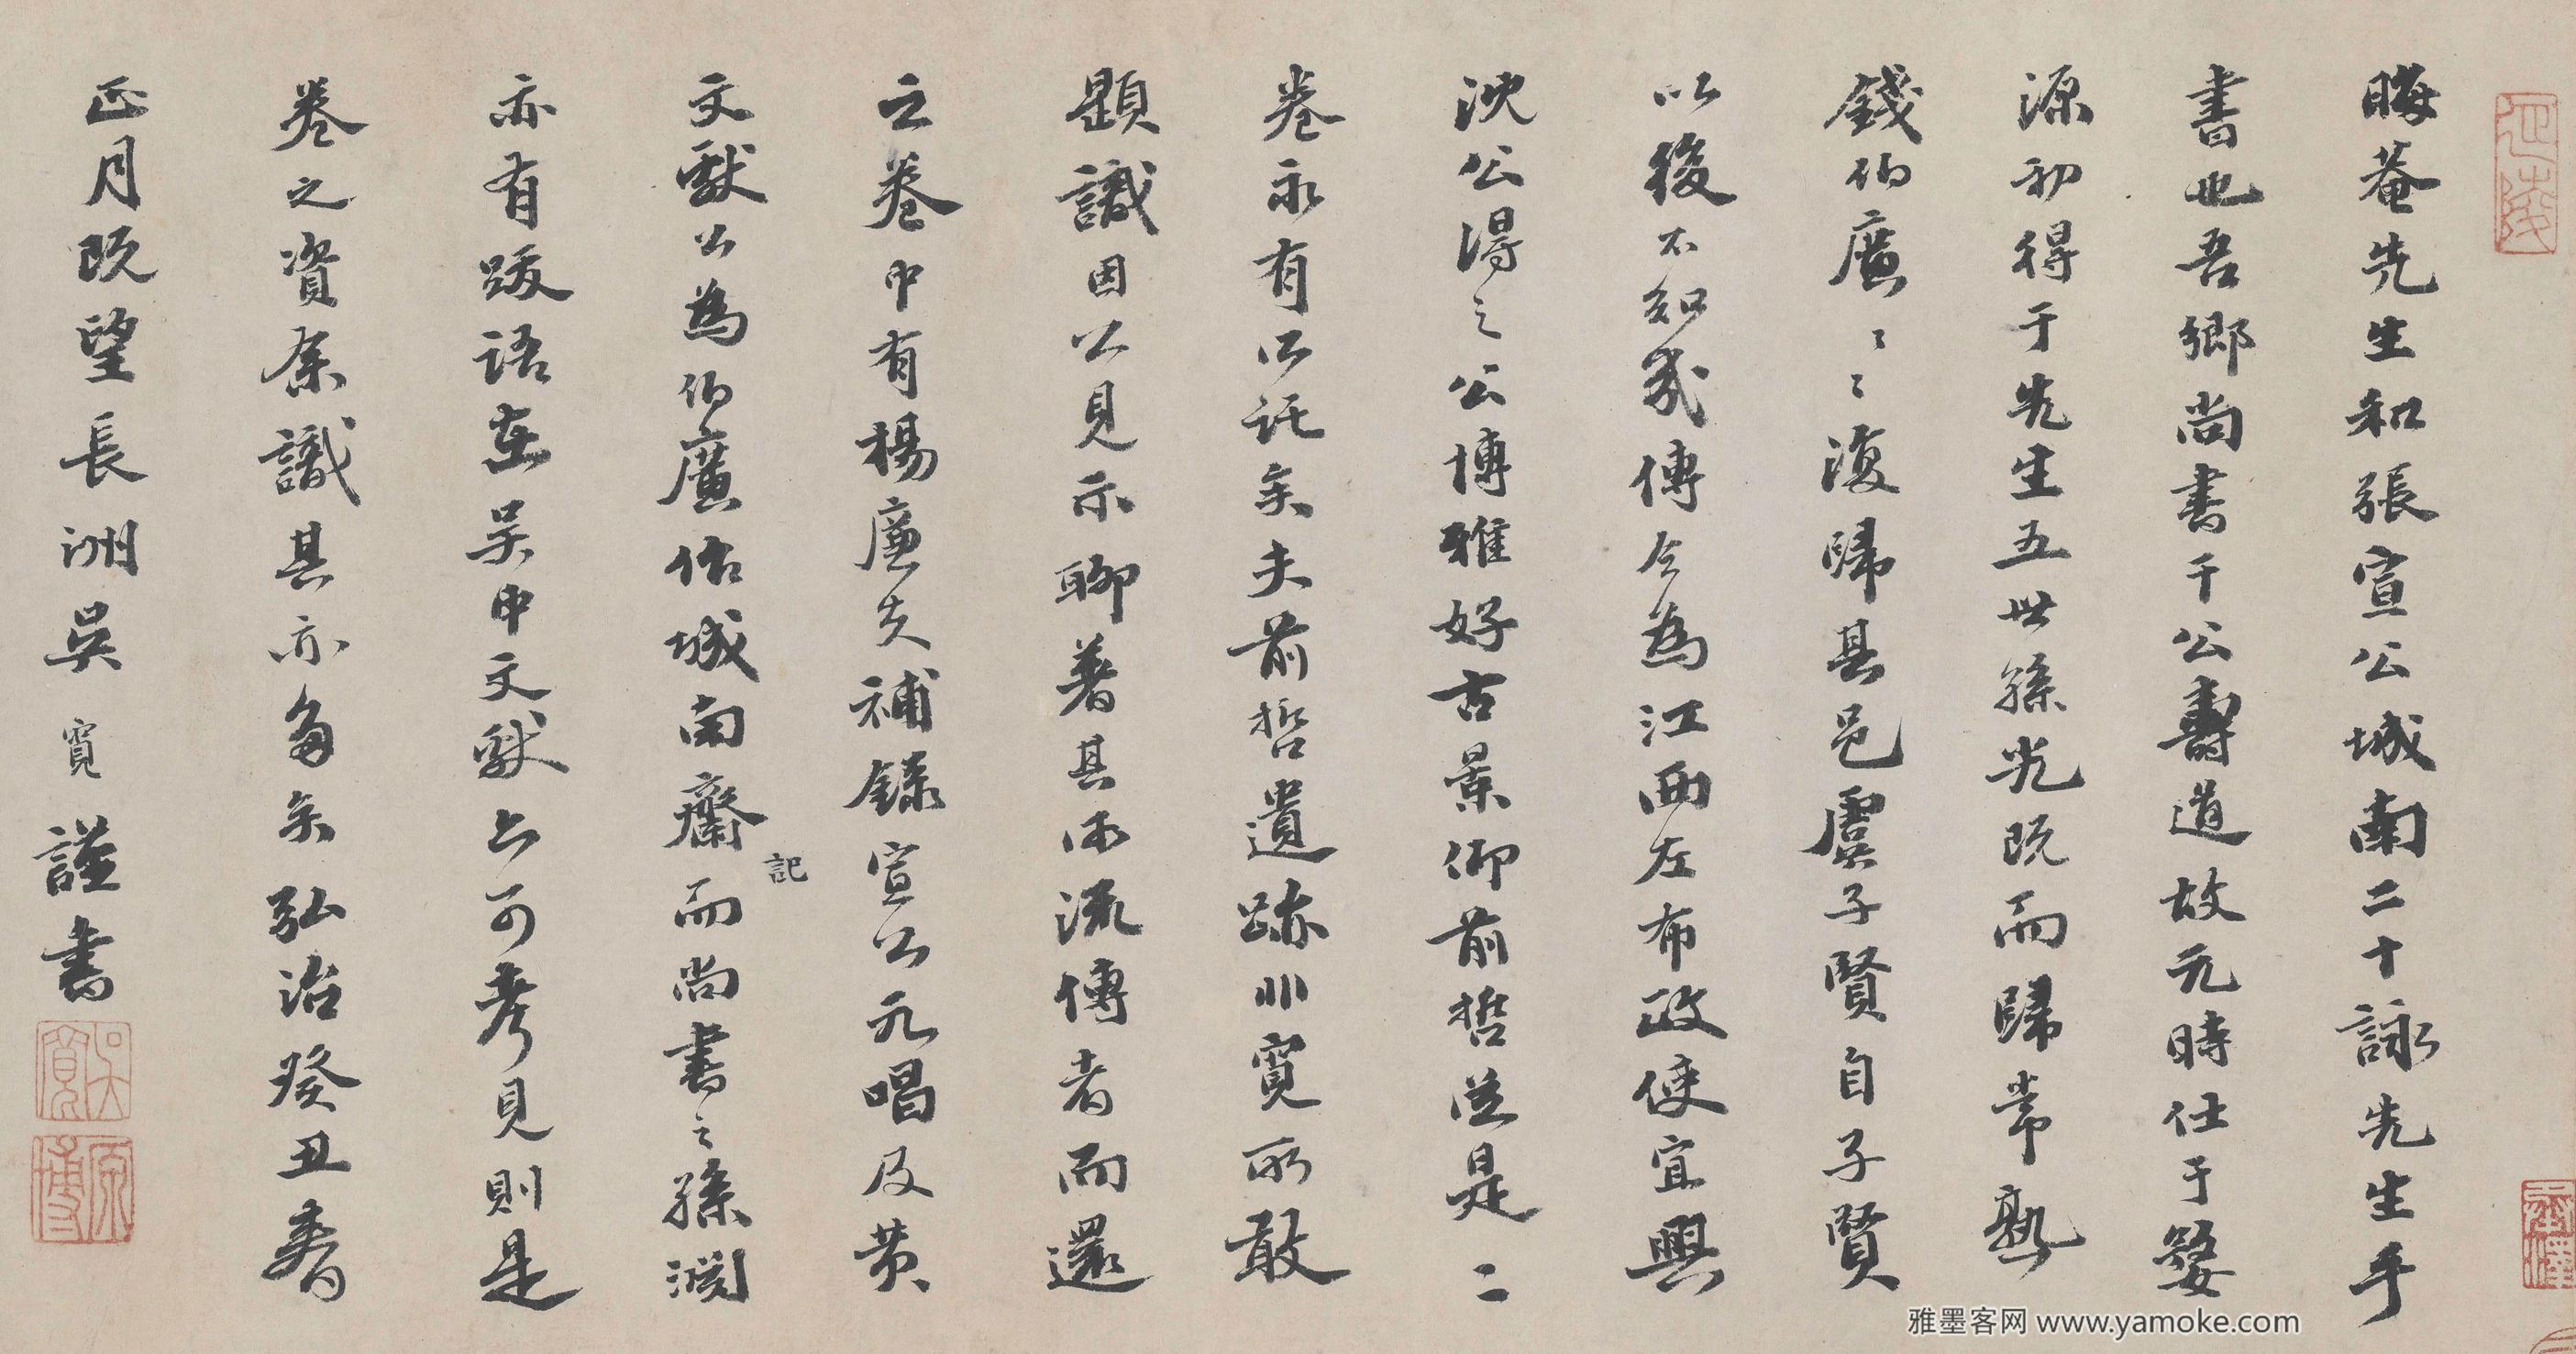 晦菴先生和張宣公城南二十詠先生手
書也吾鄉尚書干公壽道故元時仕于婺
源初得于先生五世孫光既而歸常熟
錢伯廣〻〻復歸其邑虞子賢自子賢
以後不知幾傳今為江西左布政使宜興
沈公得之公博雅好古景仰前哲從是二
卷永有所託矣夫前哲遺跡非寬所敢
題識因公見示聊著其所流傳者而還
之卷中有楊廉夫補錄宣公元唱及黃
文獻公為伯廣作城南齋記而尚書之孫淵
亦有跋語在吳中文獻亦可考見則是
卷之資余識其亦多矣弘治癸丑春
正月既望長洲吳寬謹書
吳寬
原博
雅墨客网 www.yamoke.com